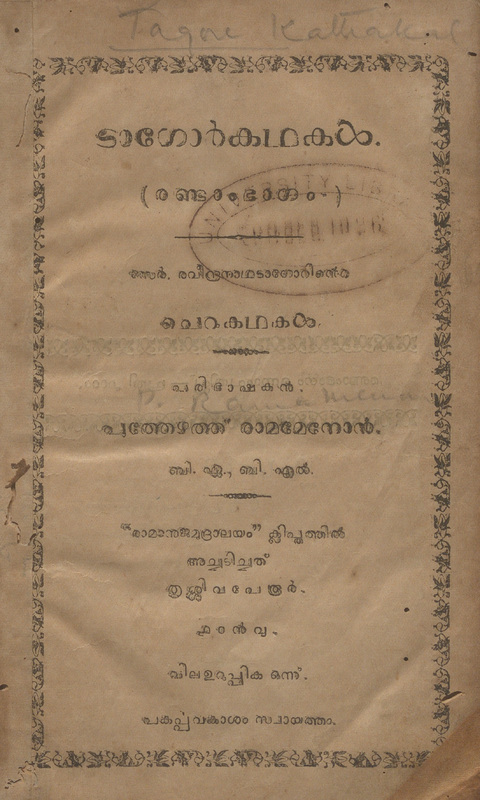 Tagore Kathakal
ടാഗോർകഥകൾ.
(രണ്ടാംഭാഗം.)
സേർ. രവീന്ദ്രനാഥടാഗോറിൻെറ
ചെറുകഥകൾ.
പരിഭാഷകൻ.
P. Rama Menon
പുത്തേഴത്ത് രാമമേനോൻ.
ബി. ഏ., ബി. എൽ.
“രാമാനുജമുദ്രാലയം” ക്ലിപ്തത്തിൽ
അച്ചടിച്ചത്
തൃശ്ശിവപേരൂർ.
വില ഉറുപ്പിക ഒന്ന്.
പകർപ്പവകാശം സ്വായത്തം.